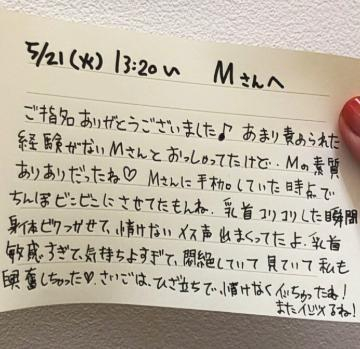 5/21(火) 13:20〜 Mさんへ
ご指名ありがとうございました♪ あまり責められた
経験がないMさんとおっしゃってたけど、Mの素質
ありありだったね♡ Mさんに手コキしていた時点で
ちんぽビンビンにさせてたもんね。乳首コリコリした瞬間
身体ビクつかせて、情けないメス声出まくってたよ。乳首
敏感すぎて、気持ちよすぎて、悶絶していて見ていて私も
興奮しちゃった♡。さいごは、ひざ立ちで、情けなくイッちゃったね!
またイジメるね!